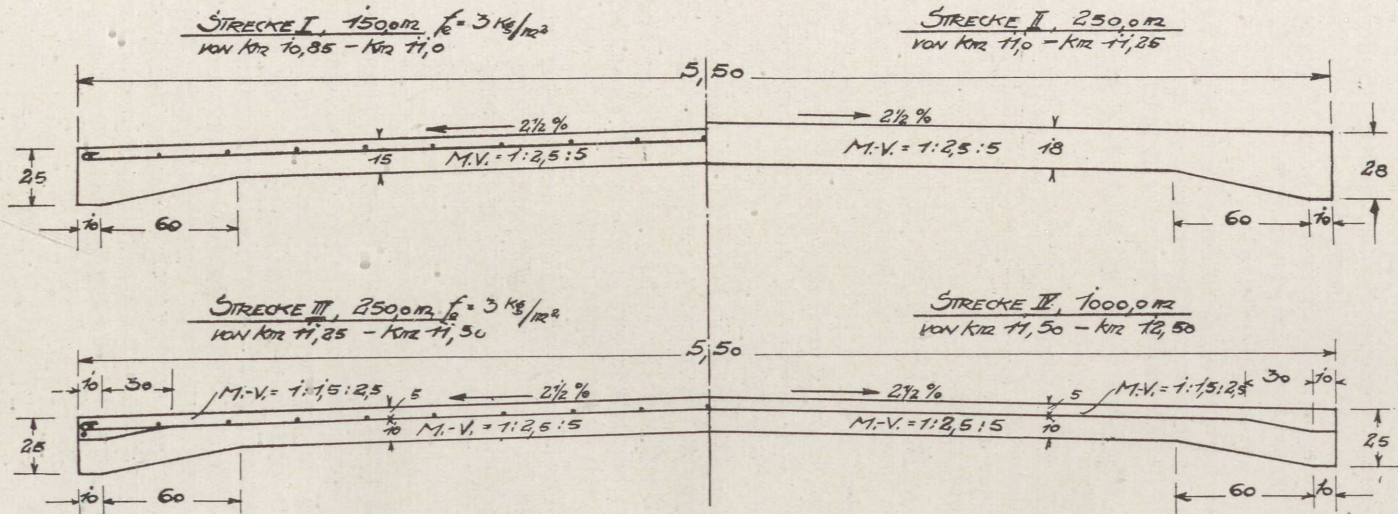 STRECKE I, 150,0 m fe = 3 kg/m²
VON Km 10,85 – Km 11,0
STRECKE II, 250,0 m
VON Km 11,0 – Km 11,25
5,50
2½ %
2½ %
15
M.V. = 1:2,5:5
M.-V. = 1:2,5:5
18
25
28
10
60
60
10
STRECKE III, 250,0 m fe = 3 kg/m²
VON Km 11,25 – Km 11,50
STRECKE IV, 1000,0 m
VON Km 11,50 – Km 12,50
5,50
10
30
M.-V. = 1:1,5:2,5
2½ %
2½ %
M.-V. = 1:1,5:2,5
30
10
5
5
10
M.-V. = 1:2,5:5
M.-V. = 1:2,5:5
10
25
25
10
60
60
10